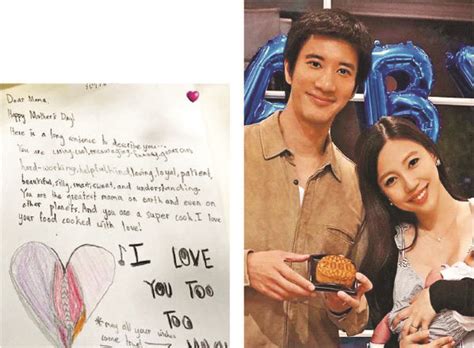 Dear Mama,
Happy Mother's Day!
Here is a long sentence to describe you...
You are caring, cool, encouraging, funny,
hard-working, helpful, kind, loving, loyal, patient,
beautiful, silly, smart, sweet, and understanding.
You are the greatest mama on earth and even on
other planets. And you are a super cook. I love
your food cooked with love!
I
LOVE
YOU TOO
TOO
*may all your wishes
come true!
B